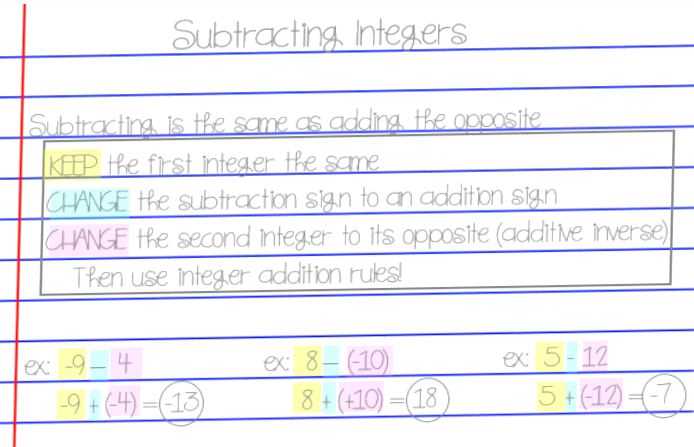 Subtracting Integers
Subtracting is the same as adding the opposite
KEEP the first integer the same
CHANGE the subtraction sign to an addition sign
CHANGE the second integer to its opposite (additive inverse)
Then use integer addition rules!
ex: -9 - 4 ex: 8 - (-10) ex: 5 - 12
-9 + (-4) = -13 8 + (+10) = 18 5 + (-12) = -7